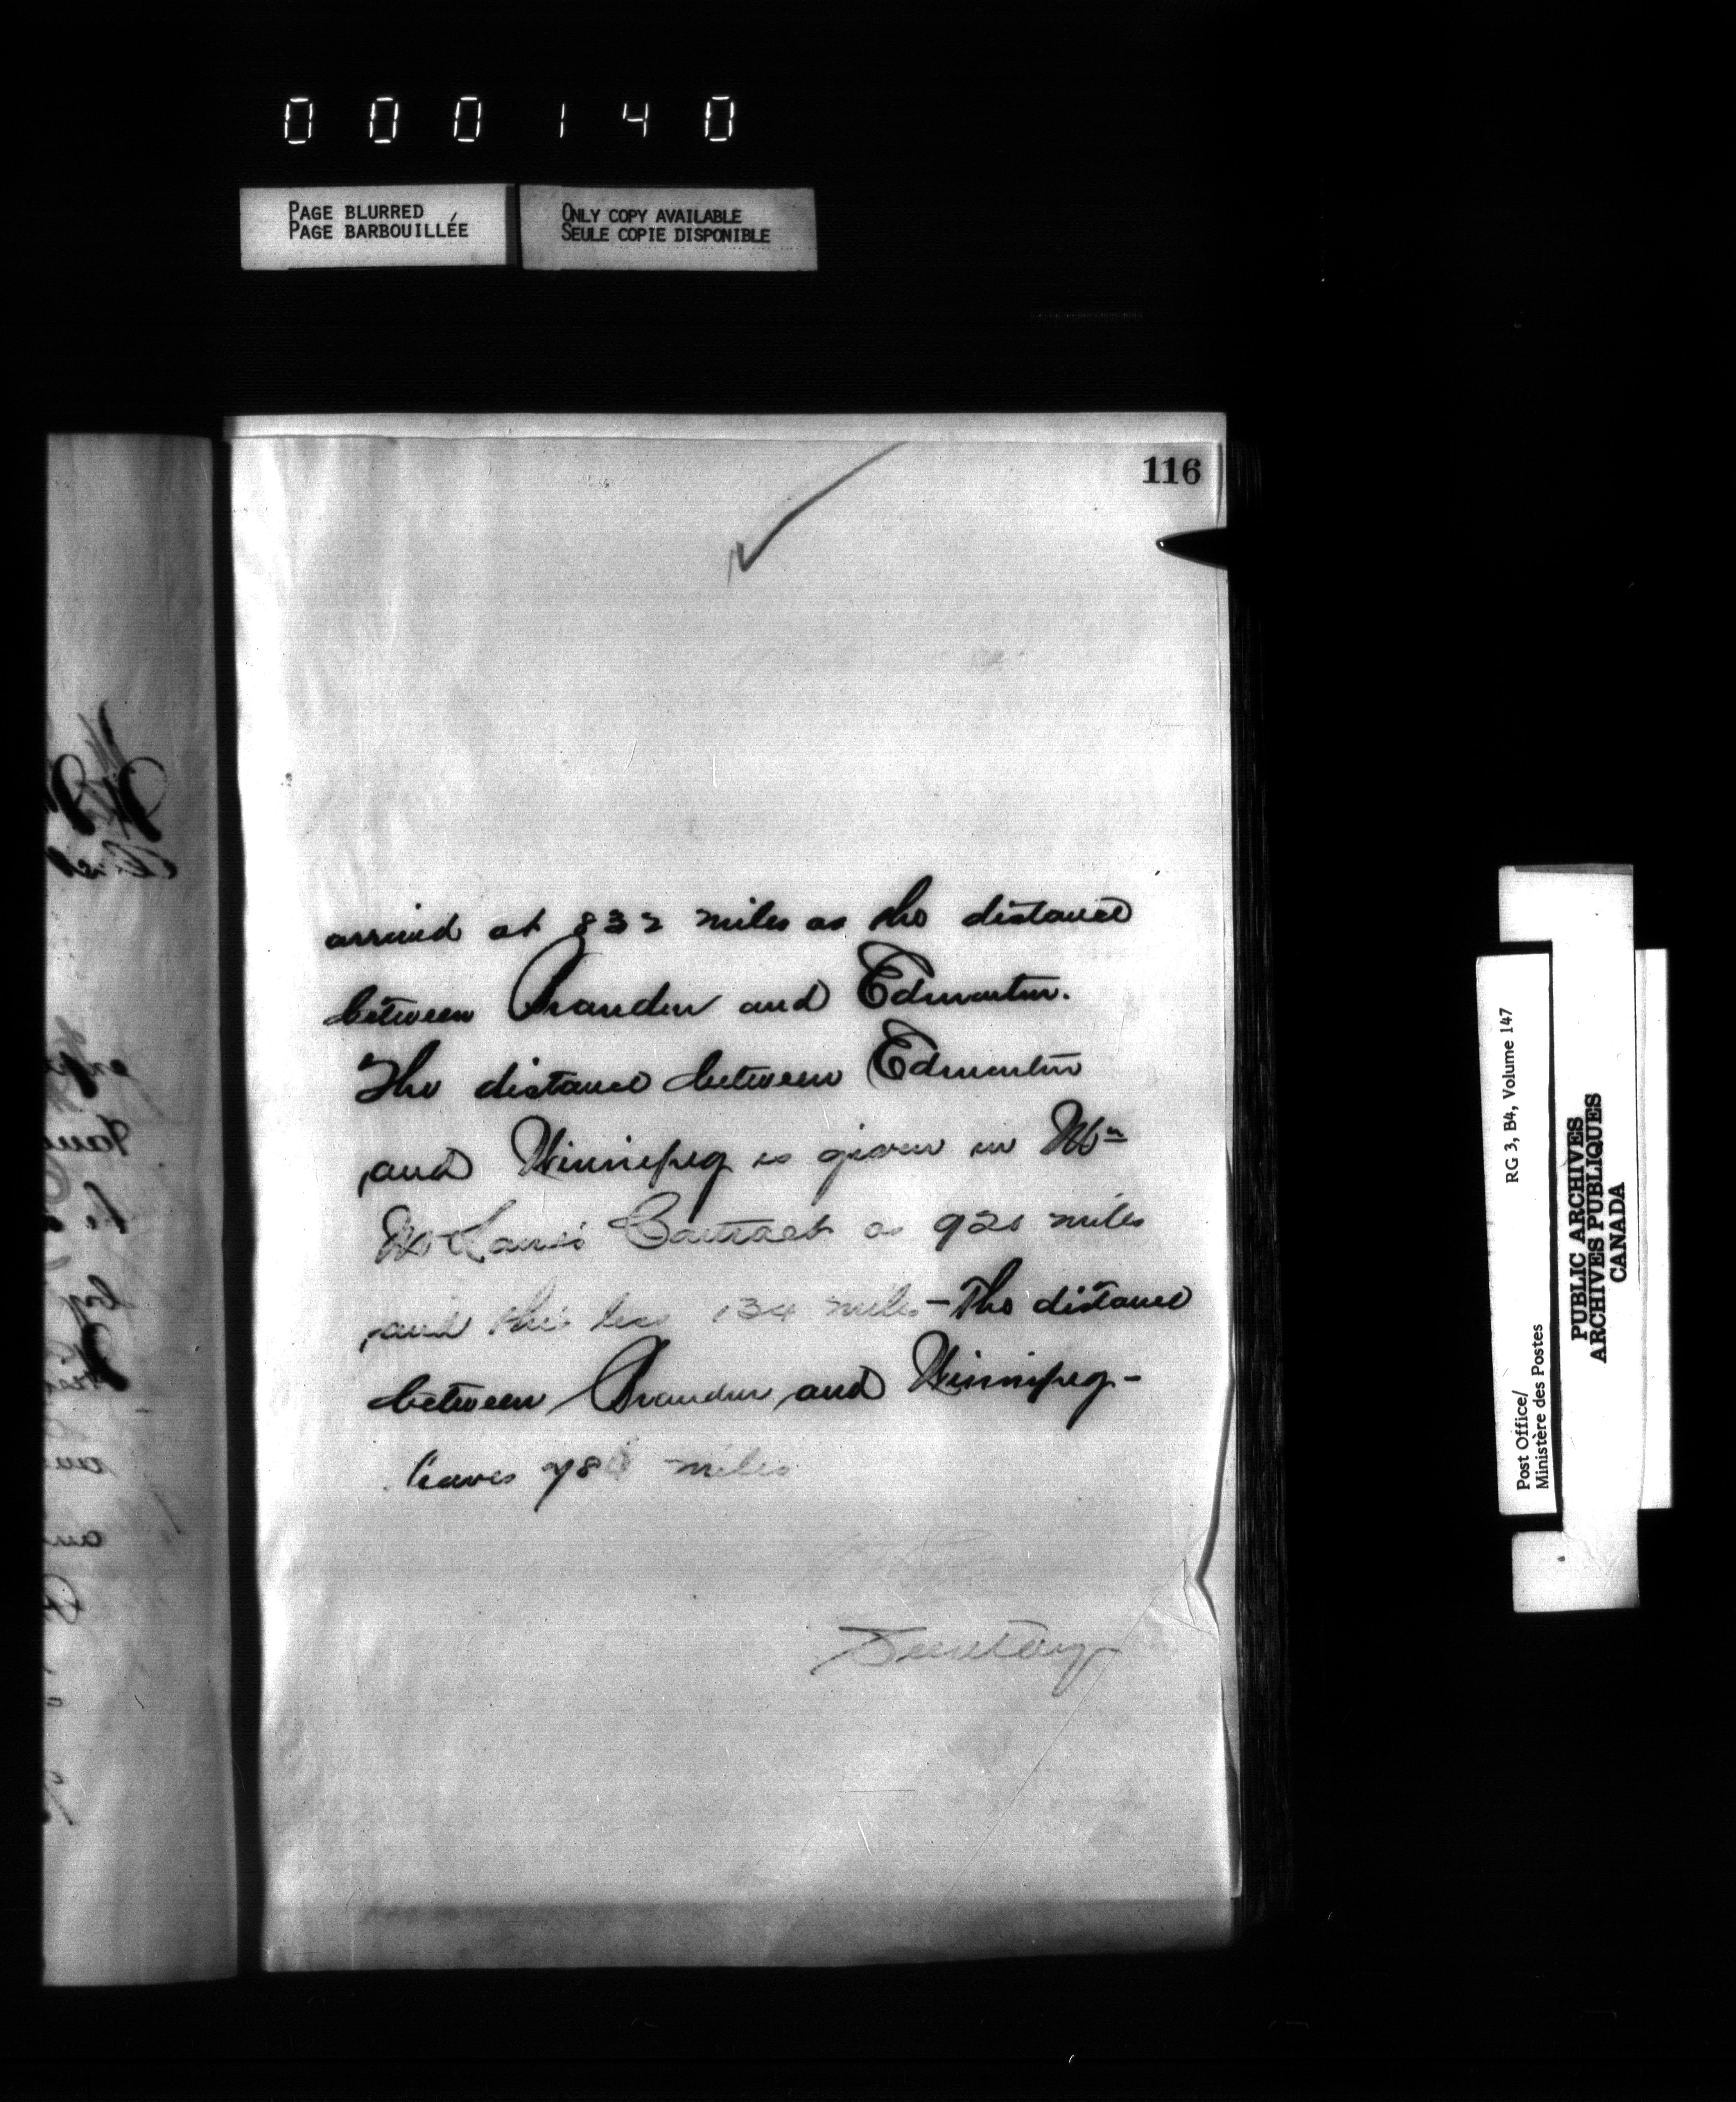 000140
PAGE BLURRED
PAGE BARBOUILLÉE
ONLY COPY AVAILABLE
SEULE COPIE DISPONIBLE
116
arrived at 832 miles as the distance
between Brandon and Edmonton.
The distance between Edmonton
and Winnipeg is given in Mr
McLane's Contract as 920 miles
and this less 134 miles – the distance
between Brandon and Winnipeg –
leaves 786 miles
Secretary
Post Office/
Ministère des Postes
RG 3, B4, Volume 147
PUBLIC ARCHIVES
ARCHIVES PUBLIQUES
CANADA